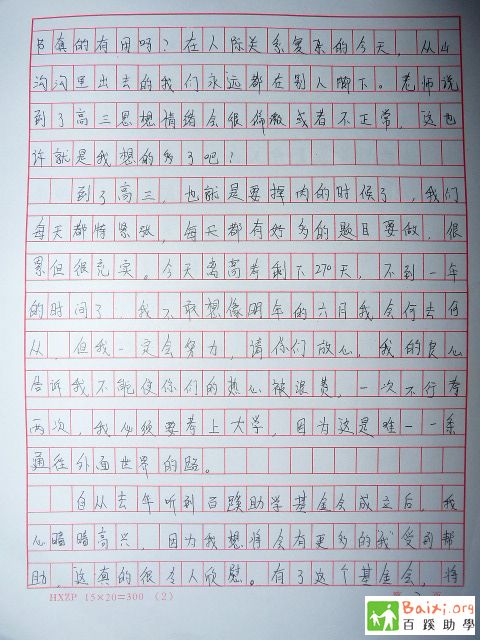 书真的有用吗？在人际关系复杂的今天，从山
沟沟里出去的我们永远都在别人脚下。老师说
到了高三思想情绪会很偏激或者不正常，这也
许就是我想的多了吧？
到了高三，也就是要掉肉的时候了，我们
每天都特紧张，每天都有好多的题目要做，很
累但很充实。今天离高考剩下270天，不到一年
的时间了，我不敢想像明年的六月我会何去何
从，但我一定会努力，请你们放心，我的良心
告诉我不能使你们的热心被浪费，一次不行考
两次，我必须要考上大学，因为这是唯一一条
通往外面世界的路。
自从去年听到百蹊助学基金会成立后，我
心暗暗高兴，因为我想将会有更多的我受到帮
助，这真的很令人欣慰。有了这个基金会，将
HXZP 15×20=300 (2)
Baixi.org
百蹊助學